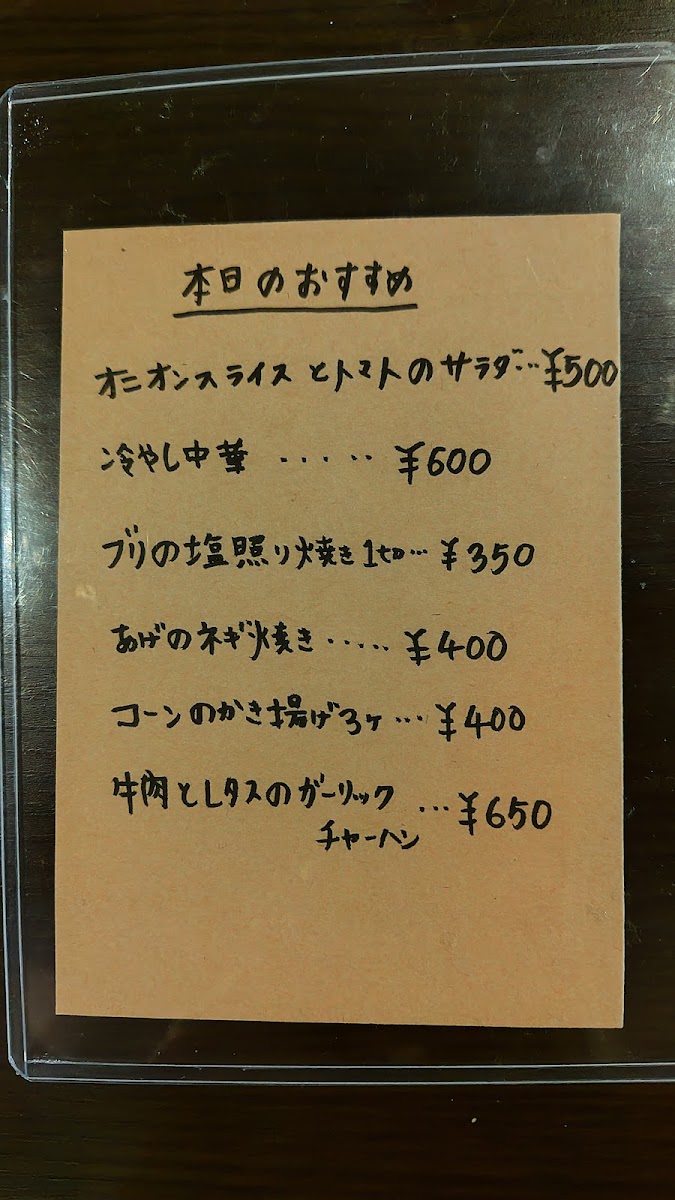 本日のおすすめ
オニオンスライスとトマトのサラダ…¥500
冷やし中華 ‥‥‥ ¥600
ブリの塩照り焼き1切…¥350
あげのネギ焼き‥‥‥¥400
コーンのかき揚げ3ヶ…¥400
牛肉とレタスのガーリック
チャーハン …¥650